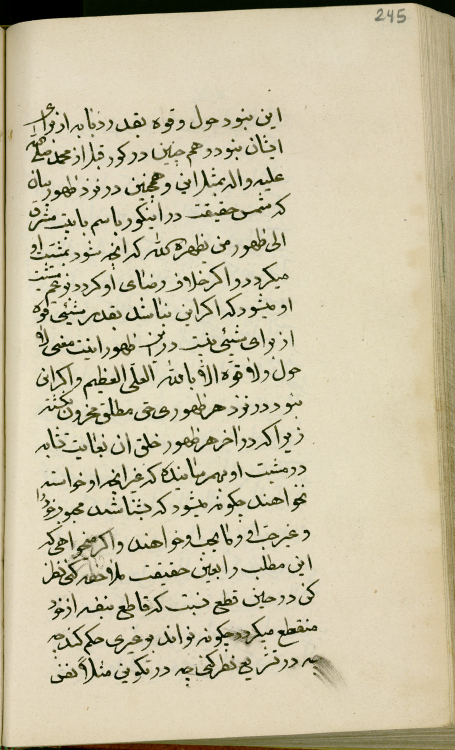 245
این نبود حول و قوه بقدر ذنابه از برای
ایشان نبود و هم چنین در کور قبل از محمد صلی الله
علیه و اله بمثل انی و همچنین در نزد ظهور بیان
که شمس حقیقت در اینکور باسم بابیت مشرق
الی ظهور من یظهره الله که انچه شود بمشیت او
میگردد و اگر خلاف رضای او گردد و غیر مشیت
او نمیشود که اگر این نباشد بقدر شیئی قوه
از برای شیئی نیست در این ظهور اینست معنی لا
حول ولا قوة الا بالله العلی العظیم و اگر این
نبود در نزد هر ظهوری حق مطلق محزون نمیگشته
زیرا که در اخر هر ظهور خلق ان بغایت
در مشیت او بهم میرسانیده که غیر انچه او خواسته
نخواهند چگونه میشود که
و غیر حب او و رضای او خواهند و اگر میخواهی که
این مطلب را بعین حقیقت ملاحظه کنی نظر
کن در حین قطع نسبت که قاطع بنفسه از خود
منقطع میگردد چگونه تواند بر غیری حکم کند چه
چه در تشریع نظر کنی چه در تکوین مثلا نفس